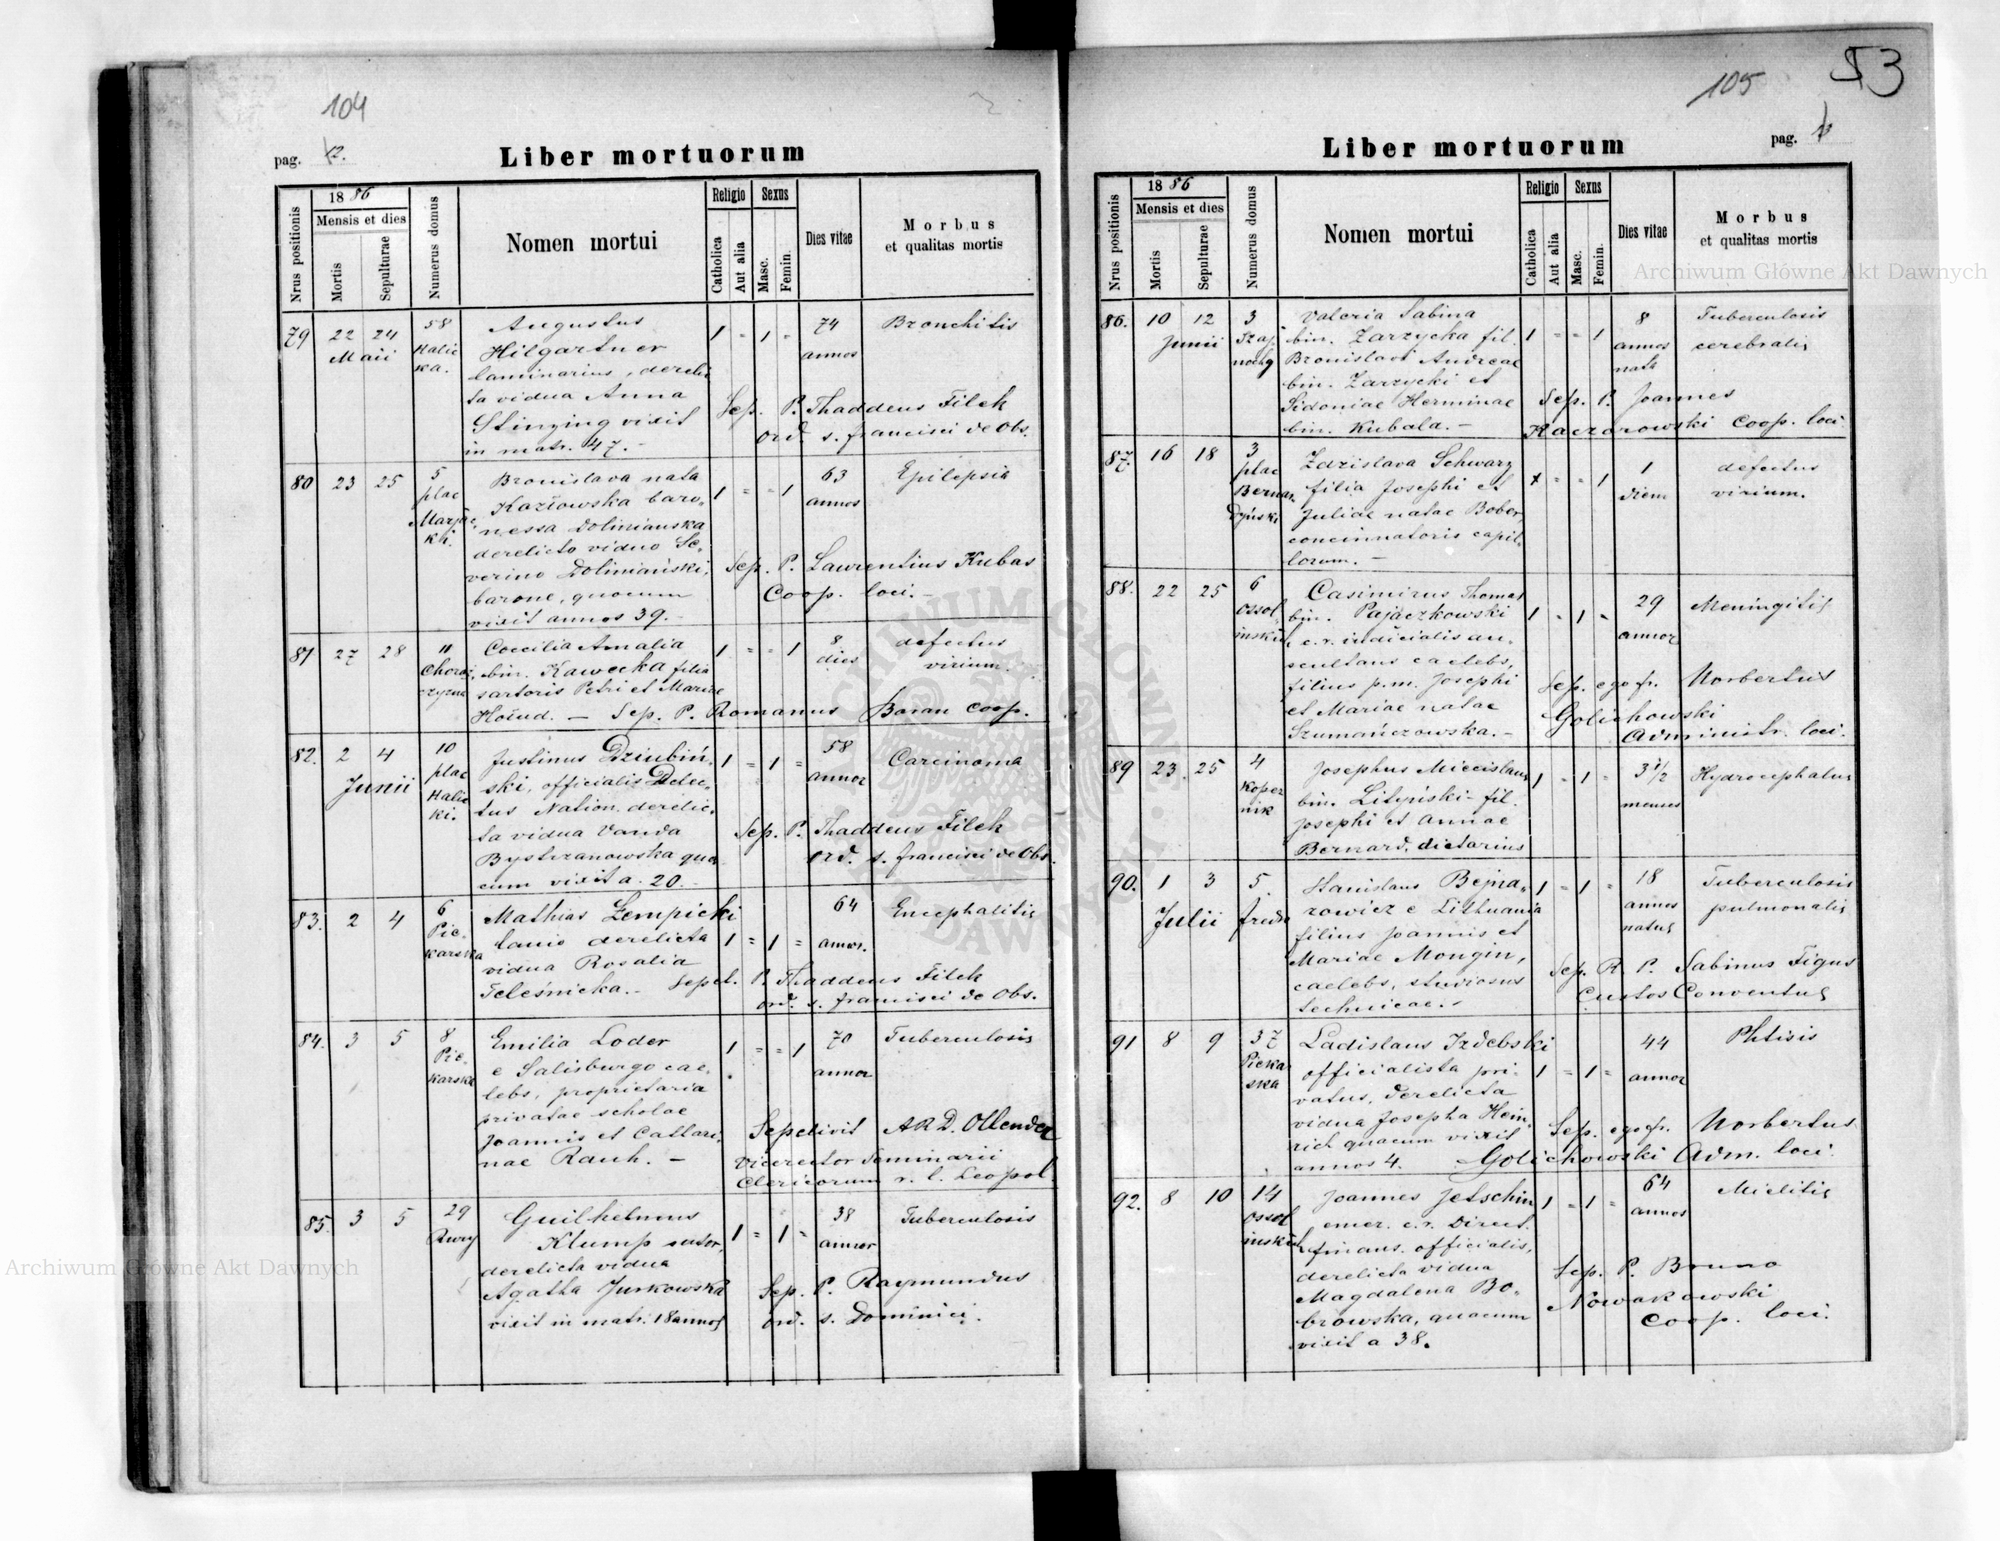 104
pag. 12.
Liber mortuorum
Nrus positionis
1886
Mensis et dies
Mortis
Sepulturae
Numerus domus
Nomen mortui
Religio
Catholica
Aut alia
Sexus
Masc.
Femin.
Dies vitae
Morbus
et qualitas mortis
79 22 24 Maii
58
Halic
ka.
Augustus
Hilgartner
laminarius, derelic
ta vidua Anna
Stinzing vixit
in matr. 47. -
1 = 1 =
74
annos
Bronchitis
Sep. P. Thaddeus Filek
ord. s. francisci de Obs.
80 23 25
5
plac
Marjac
ki.
Bronislava nata
baro-
nessa Doliniańska
derelicto viduo Se-
verino Doliniański,
barone, quocum
vixit annos 39. -
1 = = 1
63
annos
Epilepsia
Sep. P. Laurentius Kubas
Coop. loci. -
81 27 28
11
Chorą
czyzna
Coecilia Amalia
bin. Kawecka filia
sartoris Petri et Mariae
1 = = 1
8
dies
defectus
virium.
Sep. P. Romanus Baran Coop.
82. 2 4 Junii
10
plac
Halic
ki.
Justinus Dziubiń-
ski, officialis Delec-
tus Nation. derelic-
ta vidua Vanda
Bystrzanowska qua
cum vixit a. 20. -
1 = 1 =
58
annor
Carcinoma
Sep. P. Thaddeus Filek
ord. s. francisci de Obs.
83. 2 4
6
Pie-
karska
Mathias Zempicki
lanio derelicta
vidua Rosalia
Teleśnicka. -
1 = 1 =
64
annor.
Encephalitis
Sepel. P. Thaddeus Filek
ord. s. francisci de Obs.
84. 3 5
8
Pie-
karska
Emilia Loder
e Salisburgo cae-
lebs, proprietaria
privatae scholae
Joannis et Cattari-
nae Rauh. -
1 = = 1
70
annor
Tuberculosis
Sepelivit ARD. Ollender
Vicerector Seminarii
Clericorum r. l. Leopol.
85. 3 5
29
Rury
Guilhelmus
Klump sutor,
derelicta vidua
Agatha Jurkowska
vixit in matr. 18 annos
1 = 1 =
38
annor
Tuberculosis
Sep. P. Raymundus
ord. s. Dominici.
53
105
pag.
Liber mortuorum
Nrus positionis
1886
Mensis et dies
Mortis
Sepulturae
Numerus domus
Nomen mortui
Religio
Catholica
Aut alia
Sexus
Masc.
Femin.
Dies vitae
Morbus
et qualitas mortis
86. 10 12 Junii
3
Szaj
nochy
Valeria Sabina
bin. Zarzycka fil.
Bronislavi Andreae
bin. Zarzycki et
Sidoniae Herminae
bin. Kubala. -
1 = = 1
8
annos
nata
Tuberculosis
cerebralis
Sep. P. Joannes
Kaczorowski Coop. loci
87. 16 18
3
plac
Bernar
dyński
Zdzislava Schwarz
filia Josephi et
Juliae natae Bober,
concinnatoris capil-
lorum. -
= = 1
1
diem
defectus
virium.
88. 22 25
6
Ossol
ińskich
Casimirus Thomas
bin. Pajączkowski
c. r. iudicialis au-
scultans caelebs,
filius p.m. Josephi
et Mariae natae
Szumańczowska. -
1 = 1 =
29
annor
Meningitis
Sep. ego fr. Norbertus
Golichowski
Administr. loci.
89 23 25
4
Koper
nik
Josephus Miecislaus
bin. Lityński fil.
Josephi et Annae
Bernard. dietarius
1 = 1 =
3 1/2
menses
Hydrocephalus
90. 1 3 Julii
5.
fredra
Stanislaus Bejna-
rowicz e Lithuania
filius Joannis et
Mariae Mongin,
caelebs, studiosus
technicae. -
1 = 1 =
18
annos
natus
Tuberculosis
pulmonalis
Sep. R. P. Sabinus Figus
Custos Conventus
91 8 9
37
Pieka
ska
Ladislaus Izdebski
officialista pri-
vatus, derelicta
vidua Josepha Hein-
rich quacum vixit
annos 4.
1 = 1 =
44
annor
Phtisis
Sep. ego fr. Norbertus
Golichowski Adm. loci.
92. 8 10
14
Ossol
ińskich
Joannes Jetschin
emer. c. r. Direct.
finans. officialis,
derelicta vidua
Magdalena Bo-
browska, quacum
vixit a 38.
1 = 1 =
64
annos
Mielitis
Sep. P. Bruno
Nowakowski
Coop. loci.
Archiwum Główne Akt Dawnych
Archiwum Główne Akt Dawnych
ARCHIWUM GŁÓWNE AKT DAWNYCH